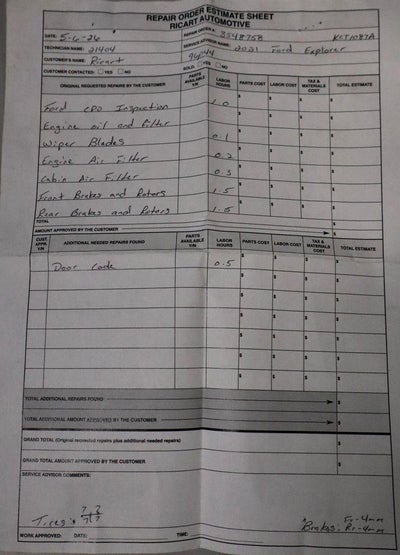 REPAIR ORDER ESTIMATE SHEET
RICART AUTOMOTIVE
DATE: 5-6-26 REPAIR ORDER #: 3548758 KCT1087A
TECHNICIAN NAME: 21404 SERVICE ADVISOR NAME: 2021 Ford Explorer
CUSTOMER'S NAME: Ricart 96,44
CUSTOMER CONTACTED: YES NO SOLD: YES NO
ORIGINAL REQUESTED REPAIRS BY THE CUSTOMER PARTS AVAILABLE Y/N LABOR HOURS PARTS COST LABOR COST TAX & MATERIALS COST TOTAL ESTIMATE
Ford CPO Inspection 1.0 $ $ $ $
Engine oil and Filter $ $ $ $
Wiper Blades 0.1 $ $ $ $
Engine Air Filter 0.2 $ $ $ $
Cabin Air Filter 0.3 $ $ $ $
Front Brakes and Rotors 1.5 $ $ $ $
Rear Brakes and Rotors 1.5 $ $ $ $
TOTAL
AMOUNT APPROVED BY THE CUSTOMER $
CUST. APPR. Y/N ADDITIONAL NEEDED REPAIRS FOUND PARTS AVAILABLE Y/N LABOR HOURS PARTS COST LABOR COST TAX & MATERIALS COST TOTAL ESTIMATE
Door Code 0.5 $ $ $ $
TOTAL ADDITIONAL REPAIRS FOUND $
TOTAL ADDITIONAL AMOUNT APPROVED BY THE CUSTOMER $
GRAND TOTAL (Original recreated repairs plus additional needed repairs) $
GRAND TOTAL AMOUNT APPROVED BY THE CUSTOMER $
SERVICE ADVISOR COMMENTS:
Tires: 7 7
7 7
Brakes: Fr-4mm
Rr-4mm
WORK APPROVED: DATE: TIME: